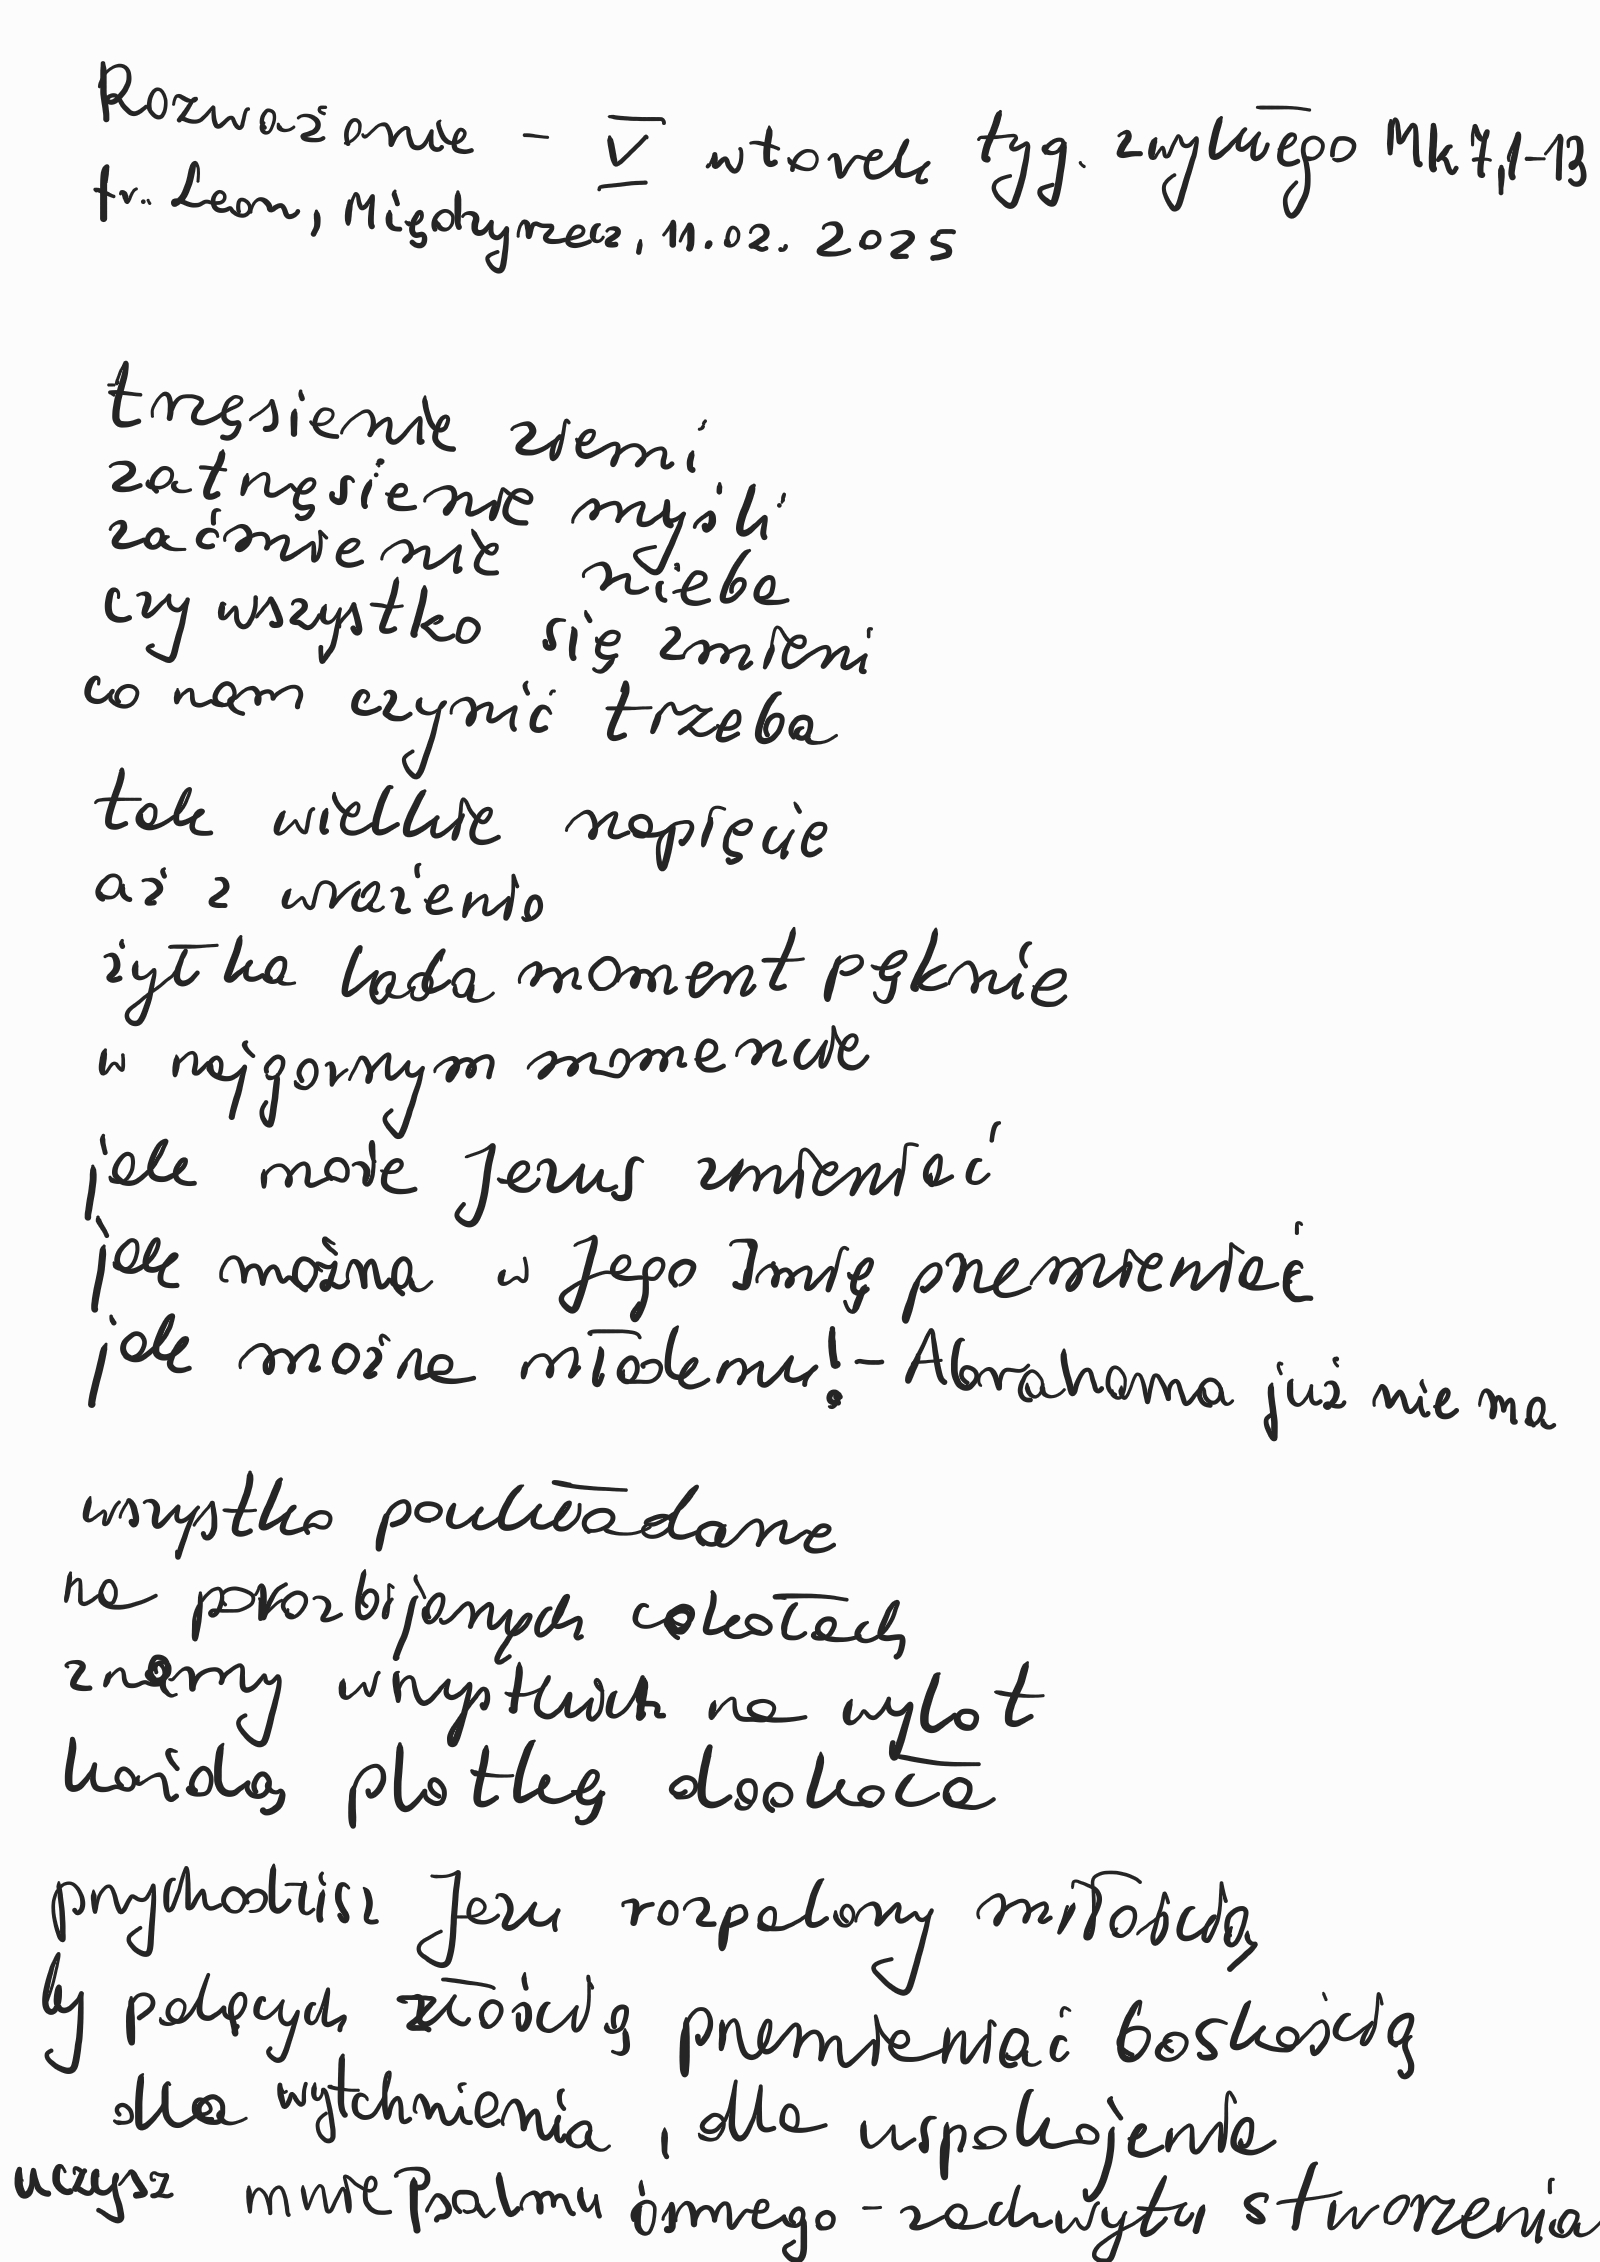 Rozważanie - V wtorek tyg. zwykłego Mk 7,1-13
fr. Leon, Międzyrzecz, 11.02.2025
trzęsienie ziemi
zatrzęsienie myśli
zaćmienie nieba
czy wszystko się zmieni
co nam czynić trzeba
tak wielkie napięcie
aż z wrażenia
żyłka lada moment pęknie
w najgorszym momencie
jak może Jezus zmieniać
jak można w Jego Imię przemieniać
jak można niodemu! - Abrahama już nie ma
wszystko poukładane
na porozbijanych cokołach
znamy wszystkich na wylot
każdą plotkę dookoła
przychodzisz Jezu rozpalony miłością
by pałących złością przemieniać boskością
dla wytchnienia, dla uspokojenia
uczysz mnie Psalmu ósmego - zachwytu stworzenia